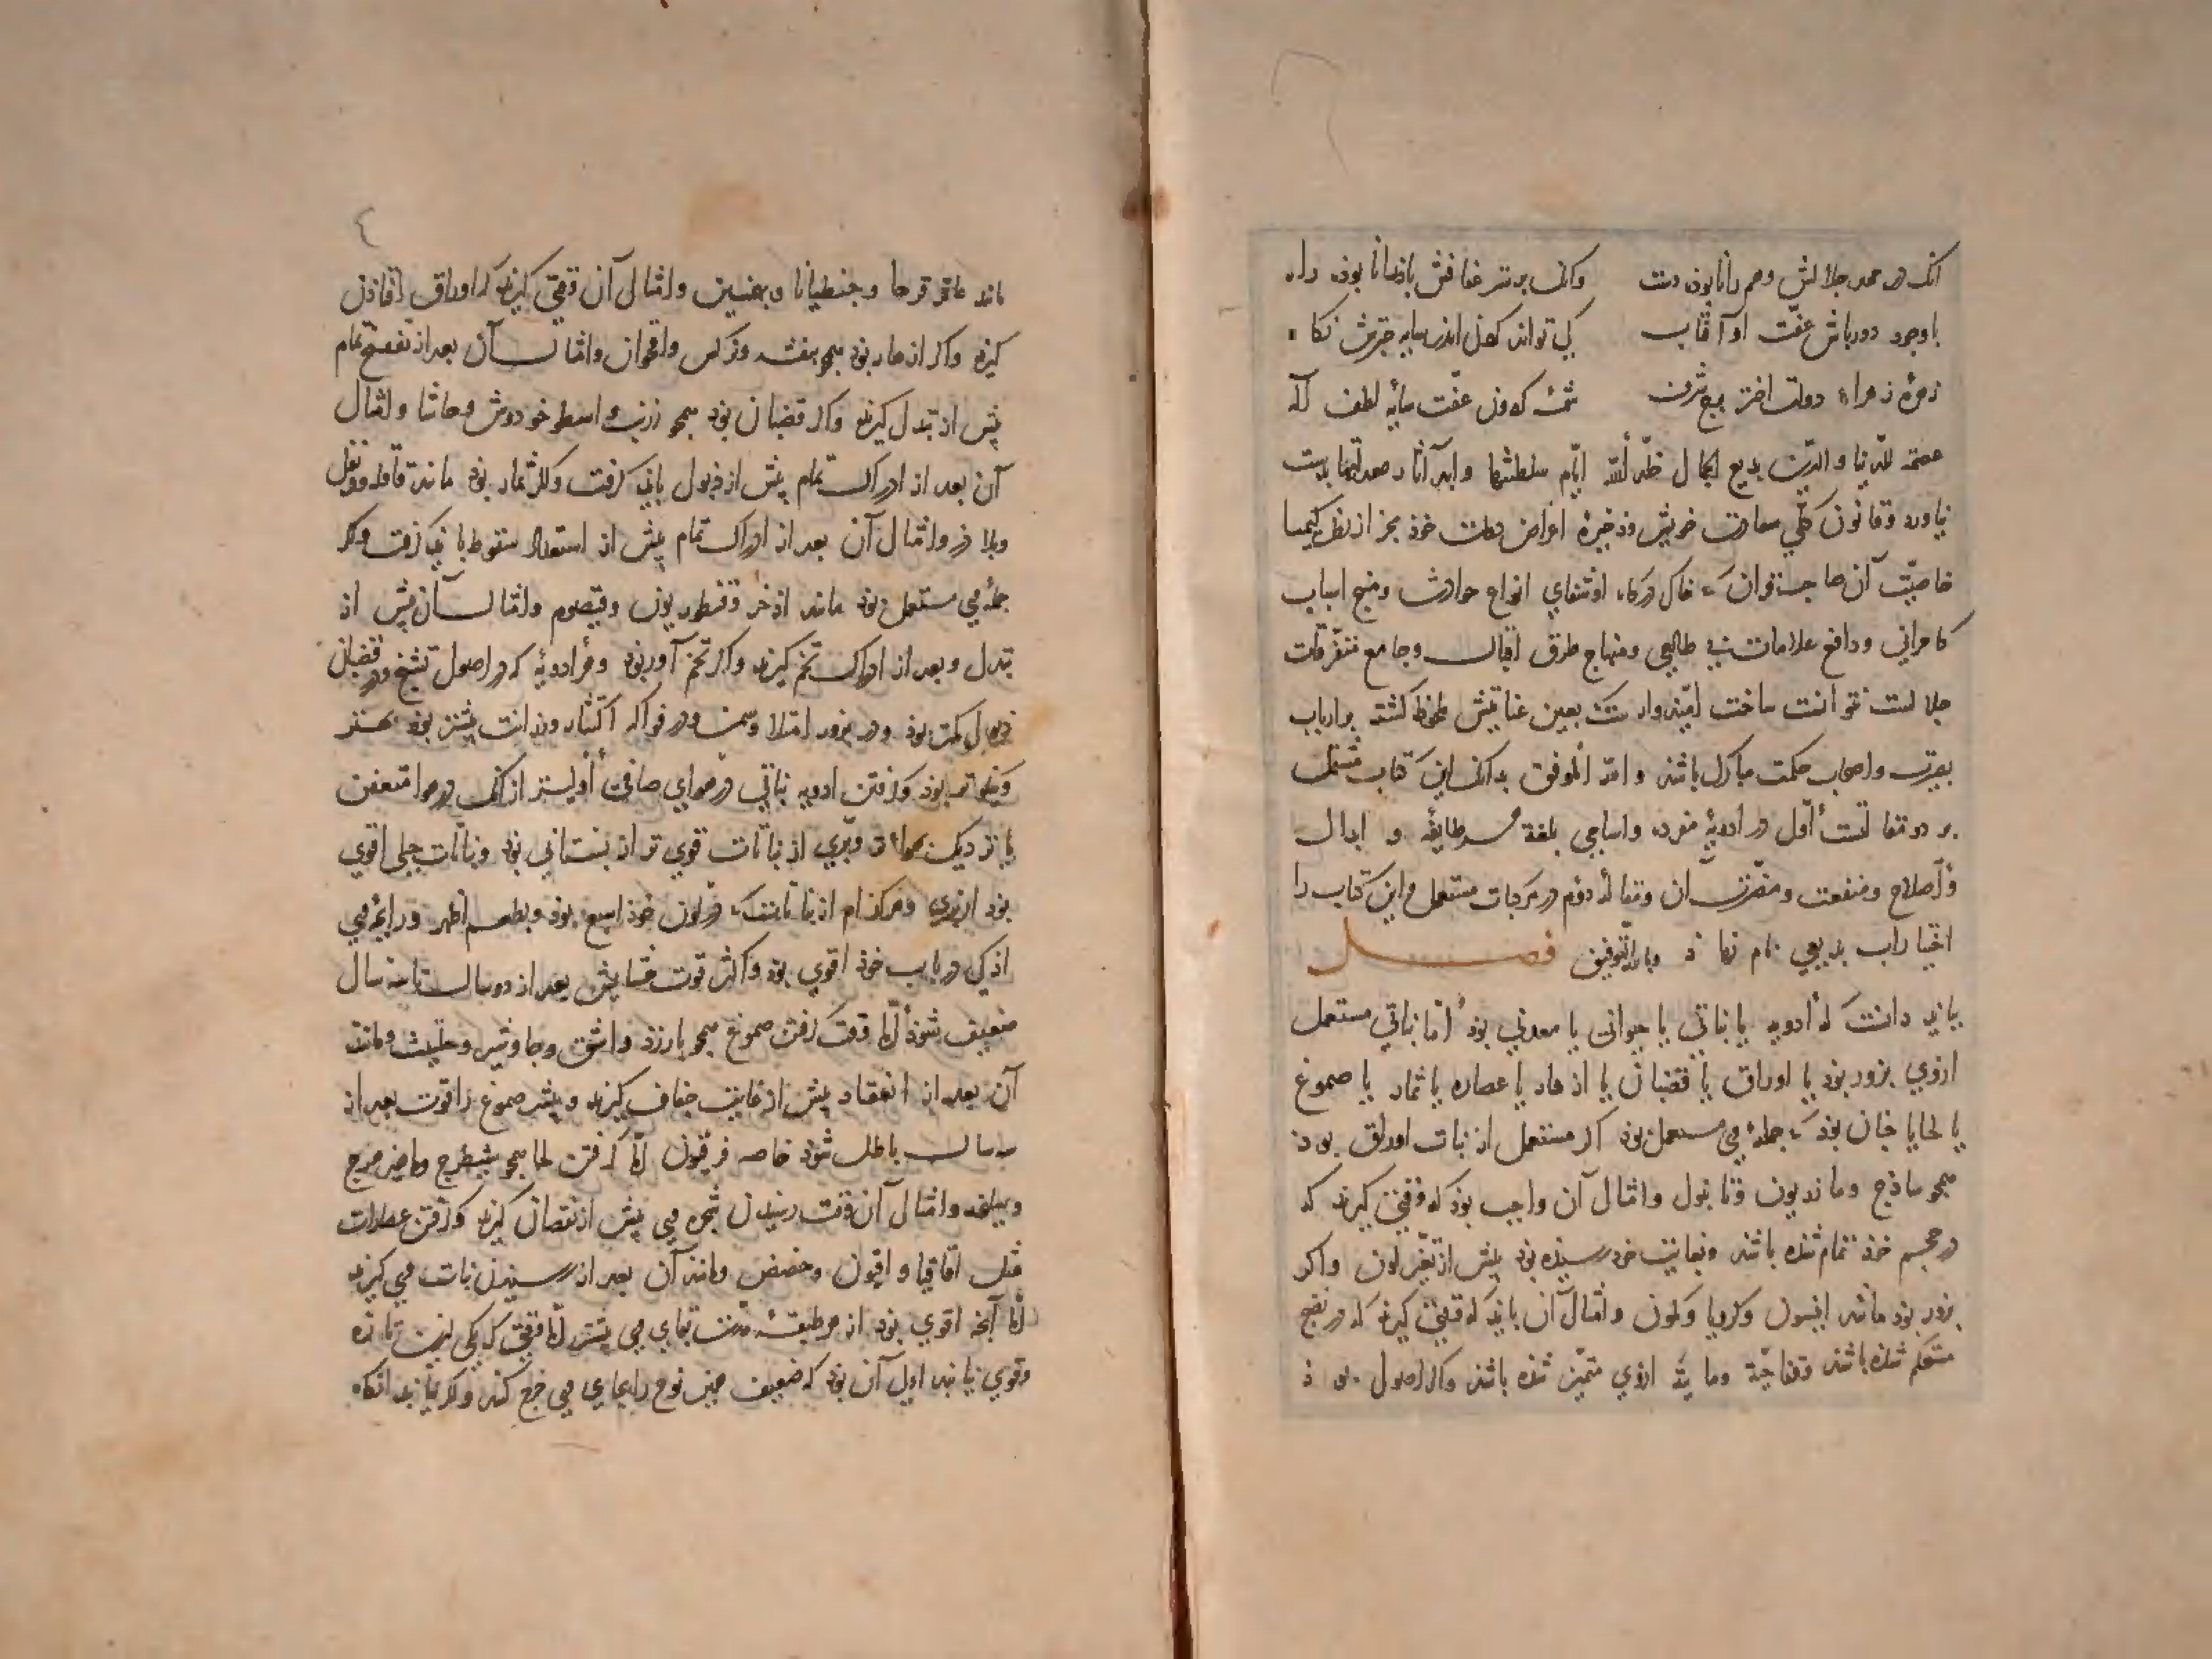 باوجود دورباش عفّت او آفتاب کی تواند کردن اندر سایه چترش نکاه
زهرهٔ زهراء دولت اختر برج شرف شمسهٔ کردون عفّت سایهٔ لطف آله
عصمة الدّنیا و الدّین بدیع الجمال خلّد الله ایّام سلطنتها و ابد آثار معدلتها بدست
نیاورد و قانون کلّی سعادت خویش و ذخیرهٔ اغراض دولت خوذ بجز از نظر کیمیا
خاصیّت آن صاحب قران که خاک درکاه او شفای انواع حوادث و منبع اسباب
کامرانی و دافع علامات طالعی و منهاج طرق اقبال و جامع متفرّقات
جلالست نتوانست ساخت امّیدوارست که بعین عنایتش ملحوظ کشته بر ارباب
بصیرت و اصحاب حکمت مبارک باشد و الله الموفق بدانک این کتاب مشتمل
بر دو مقالتست اوّل در ادویهٔ مفرده و اسامی بلغة هر طایفه و ابدال
و اصلاح و منفعت و مضرّت آن و مقالهٔ دوّم در مرکبات مستعمل و این کتاب را
اختیارات بدیعی نام نهاد و بالله التّوفیق فصل
بباید دانست که ادویه یا نباتی یا حیوانی یا معدنی بود امّا نباتی مستعمل
ازوی بزور بوذ یا اوراق یا قضبان یا ازهار یا عصاره یا ثمار یا صموغ
یا لحا یا چنان بوذ که جملهٔ وی مستعمل بوذ اکر مستعمل از نبات اوراق بوذ
همچو ساذج و مازریون و تانبول و امثال آن واجب بوذ که وقتی کیرند که
در حجم خوذ تمام شذه باشد و بغایت خود رسیذه بوذ پیش از تغیّر لون و اکر
بزور بوذ مانند انیسون و کرویا و کمون و امثال آن باید که وقتی کیرند که در نضج
مستحکم شذه باشد و فجاجة و مائیة ازوی متمیّز شذه باشد و اکر اصول بوذ
مانند عاقرقرحا و جنطیانا و بهمنین و امثال آن وقتی کیرند که اوراق افتاذن
کیرد و اکر ازهار بوذ همچو بنفشه و نرکس و اقحوان و امثال آن بعد از تفتّح تمام
پیش از تبدل کیرند و اکر قضبان بوذ همچو زرنب و اسطوخودوش و حاشا و امثال
آن بعد از ادراک تمام پیش از ذبول باید کرفت و اکر ثمار بوذ مانند قاقله و فوفل
و بلاذر و امثال آن بعد از ادراک تمام پیش از استعداد سقوط باید کرفت و اکر
جملهٔ وی مستعمل بوذ مانند اذخر و قنطوریون و قیصوم و امثال آن پیش از
تبدل و بعد از ادراک تخم کیرند و اکر تخم آور بوذ و هر ادویهٔ که در اصول تشنج و در قضبان
ذبول کمتر بوذ و در بزور امتلا و سمن و در فواکه اکتناز و رزانت بیشتر بوذ بهتر
و نیکوتر بوذ و کرفتن ادویه نباتی در هوای صافی اولیتر از آنک در هوا متعفن
یا نزدیک و برّی از نباتات قوی تر از بستانی بوذ و نباتات جبلی اقوی
بوذ از برّی و هر کذام از نباتات که در لون خوذ اشبع بوذ و بطعم اظهر و رایحهٔ وی
اذکی در باب خوذ اقوی بوذ و اکثر قوت حشایش بعد از دو سال تا سه سال
ضعیف شوذ امّا وقت کرفتن صموغ همچو بارزد و اشق و جاوشیر و حلتیت و مانند
آن بعد از انعقاد پیش از غایت جفاف کیرند و بیشتر صموغ را قوت بعد از
سه سال باطل شوذ خاصه فربیون امّا کرفتن لحا همچو شیطرج و ماهیزهرج
و سلیخه و امثال آن وقت رسیدن شجرهٔ وی پیش از نقصان کیرند و کرفتن عصارات
مثل اقاقیا و افیون و حضض و مانند آن بعد از رسیدن نبات وی کیرند
امّا آنچه اقوی بوذ از هر طبقهٔ مدّت بقای وی بیشتر امّا وقتی که یکی ازین تازه
و قوی نیابند اولی آن بوذ که ضعیف همین نوع را بجای وی خرج کنند و اکر نیابند آنکاه